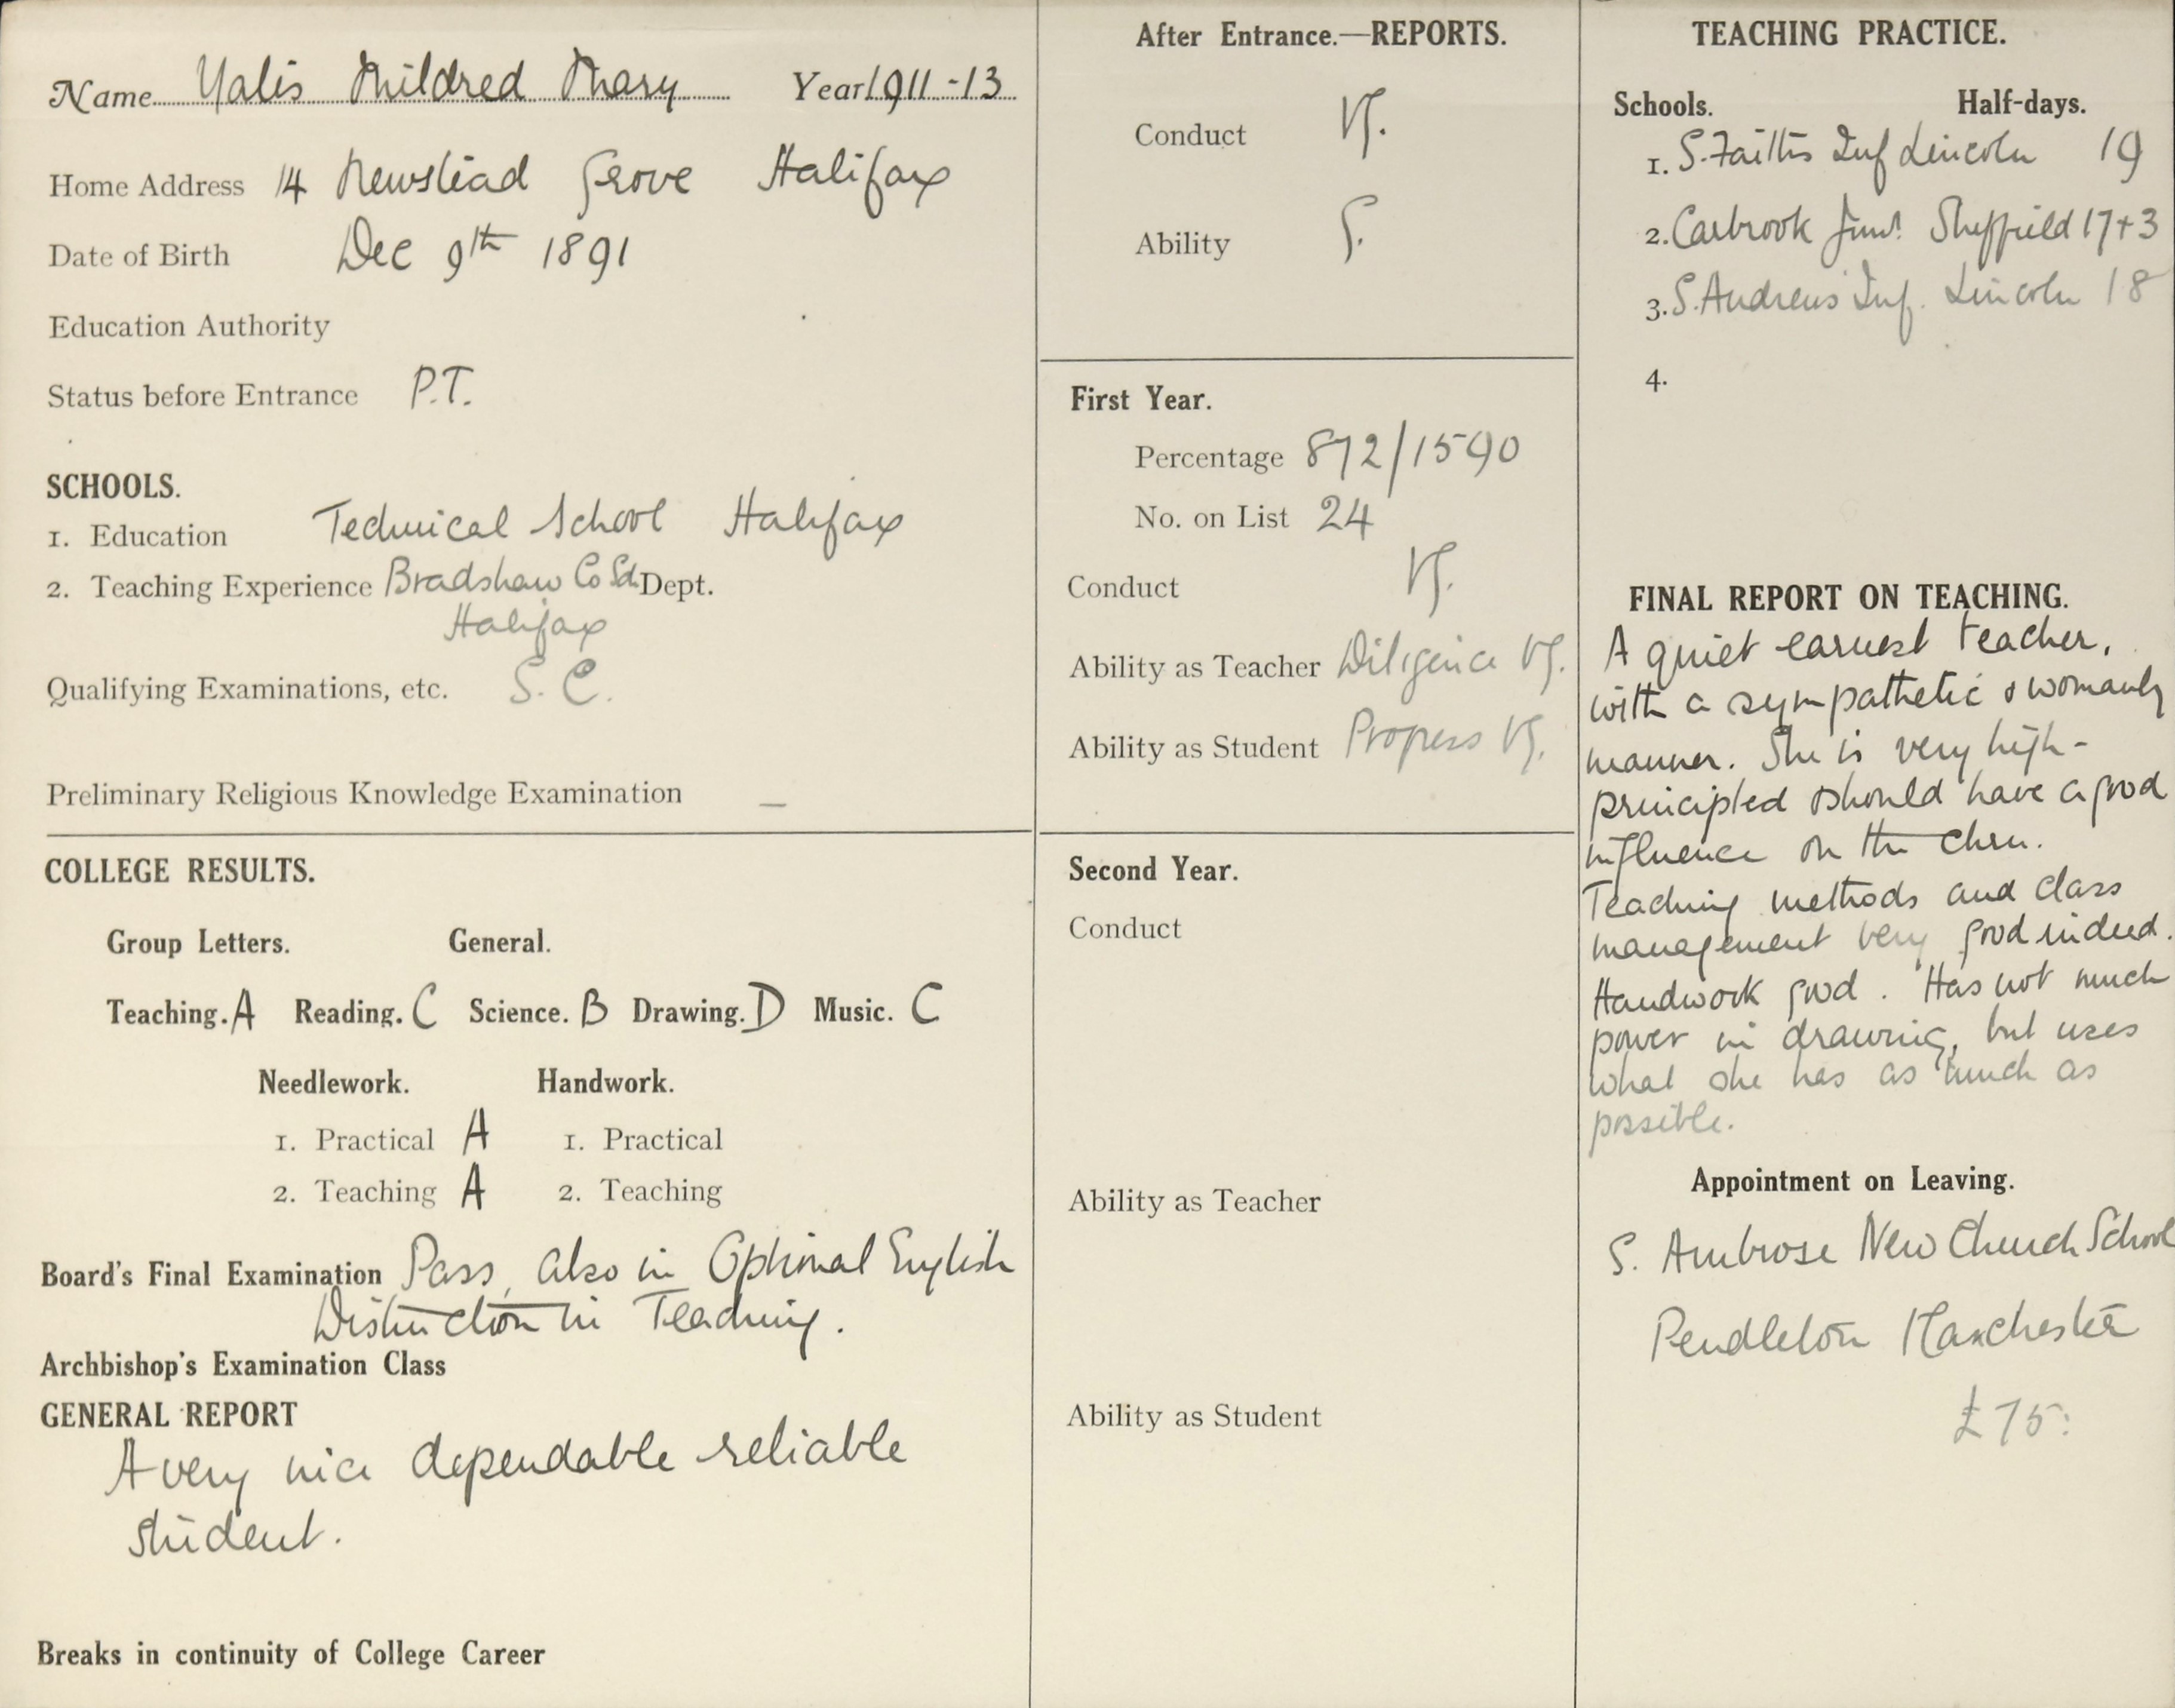 Name Yalis Mildred Mary Year 1911-13
Home Address 14 Newstead Grove Halifax
Date of Birth Dec 9th 1891
Education Authority
Status before Entrance P.T.
SCHOOLS.
1. Education Technical School Halifax
2. Teaching Experience Bradshaw Co Sch. Dept.
Halifax
Qualifying Examinations, etc. S.C.
Preliminary Religious Knowledge Examination —
COLLEGE RESULTS.
Group Letters. General.
Teaching. A Reading. C Science. B Drawing. D Music. C
Needlework. Handwork.
1. Practical A 1. Practical
2. Teaching A 2. Teaching
Board's Final Examination Pass, also in Optional English
Distinction in Teaching.
Archbishop's Examination Class
GENERAL REPORT
A very nice dependable reliable
student.
Breaks in continuity of College Career
After Entrance.—REPORTS.
Conduct VG.
Ability G.
First Year.
Percentage 872/1590
No. on List 24
Conduct VG.
Ability as Teacher Diligence VG.
Ability as Student Progress VG.
Second Year.
Conduct
Ability as Teacher
Ability as Student
TEACHING PRACTICE.
Schools. Half-days.
1. S. Faith's Inf Lincoln 19
2. Carbrook Junr. Sheffield 17+3
3. S. Andrews Inf. Lincoln 18
4.
FINAL REPORT ON TEACHING.
A quiet earnest teacher,
with a sympathetic & womanly
manner. She is very high-
principled & should have a good
influence on the chn.
Teaching methods and class
management very good indeed.
Handwork good. Has not much
power in drawing, but uses
what she has as much as
possible.
Appointment on Leaving.
S. Ambrose New Church School
Pendleton Manchester
£75.